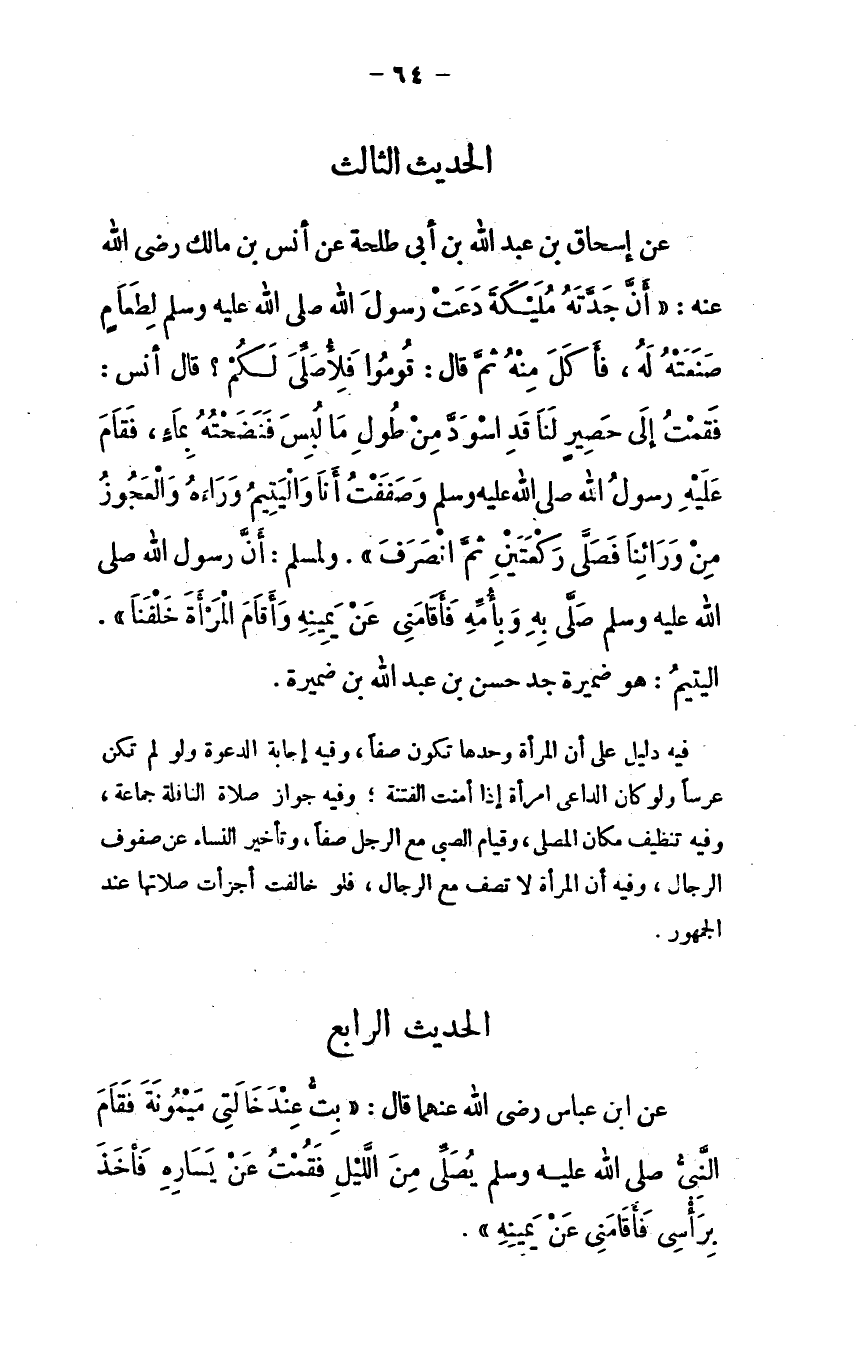 – ٦٤ –
الحديث الثالث
عن إسحاق بن عبد الله بن أبى طلحة عن أنس بن مالك رضى الله
عنه : « أَنَّ جَدَّتَهُ مُلَيْكَةَ دَعَتْ رسولَ الله صلى الله عليه وسلم لِطَعَامٍ
صَنَعَتْهُ لَهُ ، فَأَكَلَ مِنْهُ ثمَّ قال : قُومُوا فَلِأُصَلِّىَ لَكُمْ ؟ قال أنس :
فَقمْتُ إلَى حَصِيرٍ لَنَا قَدِ اسْوَدَّ مِنْ طُولِ مَا لُبِسَ فَنَضَحْتُهُ بِمَاءٍ ، فَقَامَ
عَلَيْهِ رسولُ الله صلى الله عليه وسلم وَصَفَفْتُ أَنَا وَالْيَتِيمُ وَرَاءَهُ وَالْعَجُوزُ
مِنْ وَرَائِنَا فَصَلَّى رَكْعَتَيْنِ ثمَّ انْصَرَفَ » . ولمسلم : أنَّ رسول الله صلى
الله عليه وسلم صَلَّى بِهِ وَبِأُمِّهِ فَأَقَامَنِى عَنْ يَمِينِهِ وَأَقَامَ الْمَرْأَةَ خَلْفَنَا » .
اليتيمُ : هو ضميرة جد حسن بن عبد الله بن ضميرة .
فيه دليل على أن المرأة وحدها تكون صفاً ، وفيه إجابة الدعوة ولو لم تكن
عرساً ولو كان الداعى امرأة إذا أمنت الفتنة ؛ وفيه جواز صلاة النافلة جماعة ،
وفيه تنظيف مكان المصلى ، وقيام الصبى مع الرجل صفاً ، وتأخير النساء عن صفوف
الرجال ، وفيه أن المرأة لا تصف مع الرجال ، فلو خالفت أجزأت صلاتها عند
الجمهور .
الحديث الرابع
عن ابن عباس رضى الله عنهما قال : « بِتُّ عِنْدَ خَالَتِى مَيْمُونَةَ فَقَامَ
النَّبِىُّ صلى الله عليه وسلم يُصَلِّى مِنَ اللَّيْلِ فَقُمْتُ عَنْ يَسَارِهِ فَأَخَذَ
بِرَأْسِى فَأَقَامَنِى عَنْ يَمِينِهِ » .